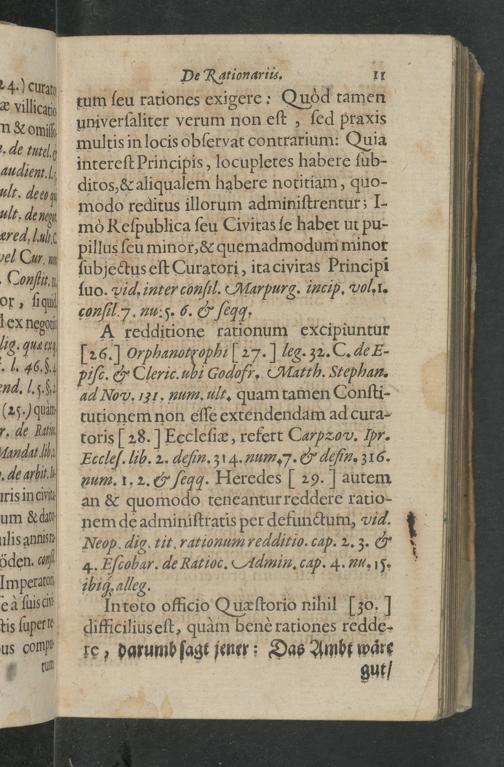 De Rationariis. 11
tum seu rationes exigere: Quòd tamen
universaliter verum non est, sed praxis
multis in locis observat contrarium: Quia
interest Principis, locupletes habere sub-
ditos, & aliqualem habere notitiam, quo-
modo reditus illorum administrentur; I-
mò Respublica seu Civitas se habet ut pu-
pillus seu minor, & quemadmodum minor
subjectus est Curatori, ita civitas Principi
suo. vid. inter consil. Marpurg. incip. vol. 1.
consil. 7. nu. 5. 6. & seqq.
A redditione rationum excipiuntur
[26.] Orphanotrophi [27.] leg. 32. C. de E-
pisc. & Cleric. ubi Godofr. Matth. Stephan.
ad Nov. 131. num. ult. quam tamen Consti-
tutionem non esse extendendam ad cura-
toris [28.] Ecclesiæ, refert Carpzov. Ipr.
Eccles. lib. 2. defin. 314. num. 7. & defin. 316.
num. 1. 2. & seqq. Heredes [29.] autem
an & quomodo teneantur reddere ratio-
nem de administratis per defunctum, vid.
Neop. dig. tit. rationum redditio. cap. 2. 3. &
4. Escobar. de Ratioc. Admin. cap. 4. nu. 15.
ibiq́. alleg.
In toto officio Quæstorio nihil [30.]
difficilius est, quàm benè rationes redde-
re, darumb sagt jener: Das Ambt wäre
gut/
24.) curato
æ villicatio
m & omisso
. de tutel. &
audient. l.
ult. de eo qu
ult. de negot
ered. l. ult. C
vel Cur. nu
Constit.
or, si quid
l ex negotii
lig. quæ ex q
. l. 46. §. 4
end. l. 5. §. 2
(25.) quàm
r. de Ratioc
Mandat. lib. 2
. de arbit. li
uris in civita
um & dato
ulis annis ra
öden. consil
Imperator
e à suis civi
tis super re
us compu-
tum